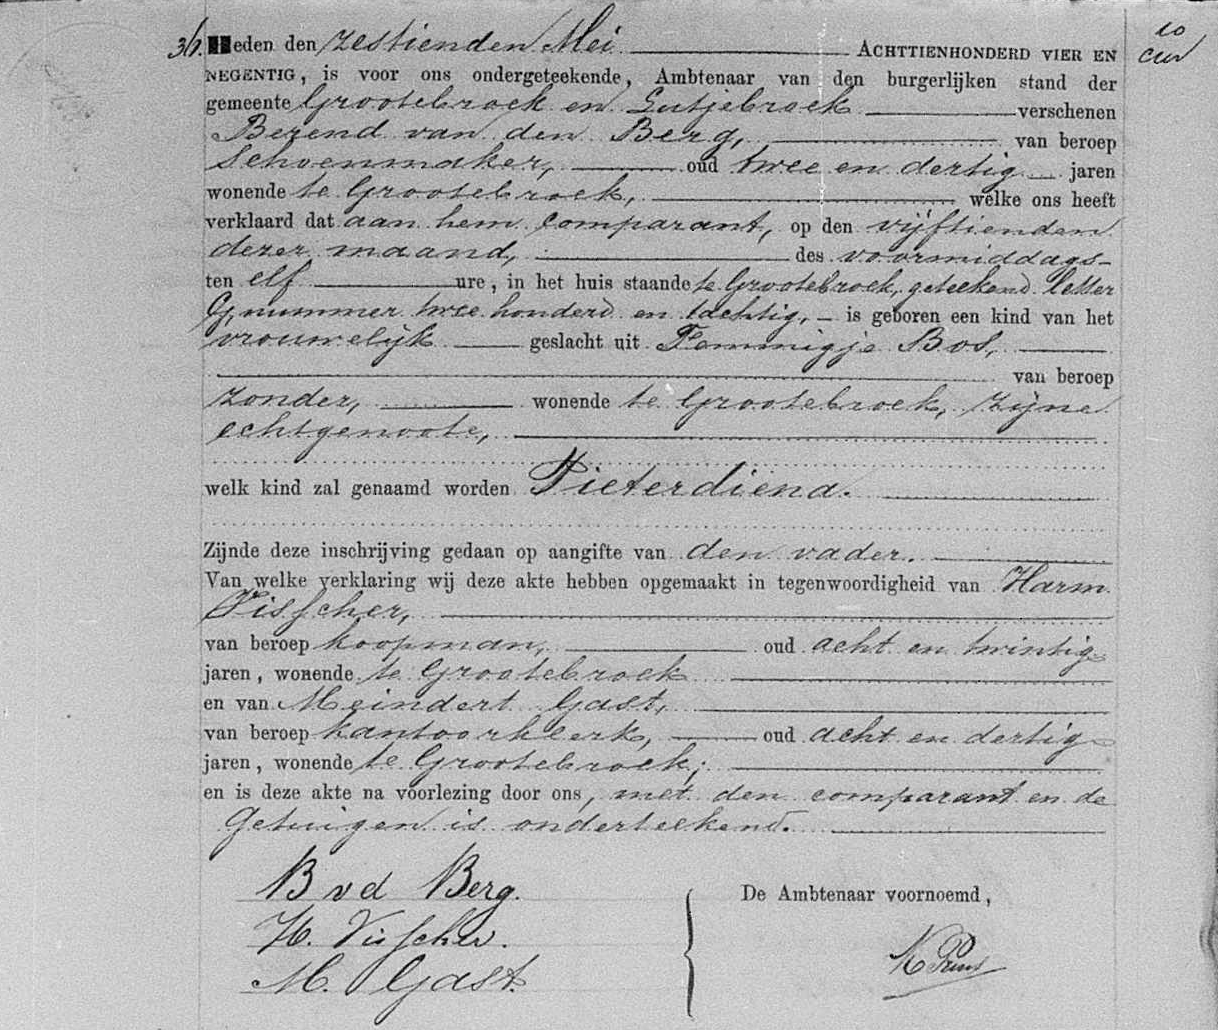 36. Heden den zestienden Mei ACHTTIENHONDERD VIER EN
NEGENTIG, is voor ons ondergeteekende, Ambtenaar van den burgerlijken stand der
gemeente Grootebroek en Lutjebroek verschenen
Berend van den Berg, van beroep
Schoenmaker, oud twee en dertig jaren
wonende te Grootebroek, welke ons heeft
verklaard dat aan hem comparant, op den vijftienden
dezer maand, des voormiddags
ten elf ure, in het huis staande te Grootebroek, geteekend letter
G, nummer twee honderd en tachtig, is geboren een kind van het
vrouwelijk geslacht uit Femmigje Bos,
van beroep
zonder, wonende te Grootebroek, zijne
echtgenoote,
welk kind zal genaamd worden Pieterdiena.
Zijnde deze inschrijving gedaan op aangifte van den vader.
Van welke verklaring wij deze akte hebben opgemaakt in tegenwoordigheid van Harm
Visscher,
van beroep koopman, oud acht en twintig
jaren, wonende te Grootebroek
en van Meindert Gast,
van beroep kantoorklerk, oud acht en dertig
jaren, wonende te Grootebroek;
en is deze akte na voorlezing door ons, met den comparant en de
Getuigen is onderteekend.
B vd Berg.
De Ambtenaar voornoemd,
H. Visscher.
M. Gast.